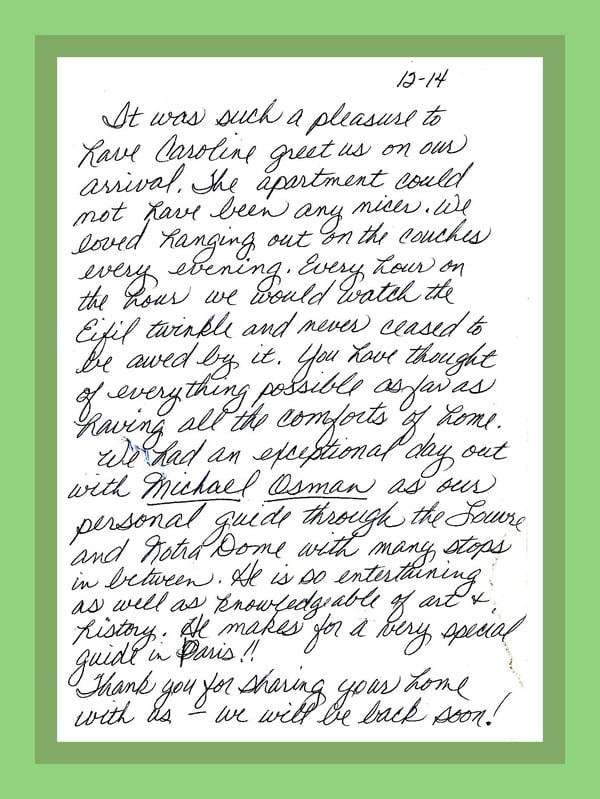 12-14
It was such a pleasure to
have Caroline greet us on our
arrival. The apartment could
not have been any nicer. We
loved hanging out on the couches
every evening. Every hour on
the hour we would watch the
Eifil twinkle and never ceased to
be awed by it. You have thought
of everything possible as far as
having all the comforts of home.
We had an exceptional day out
with Michael Osman as our
personal guide through the Louvre
and Notra Dome with many stops
in between. He is so entertaining
as well as knowledgeable of art +
history. He makes for a very special
guide in Paris!!
Thank you for sharing your home
with us – we will be back soon!